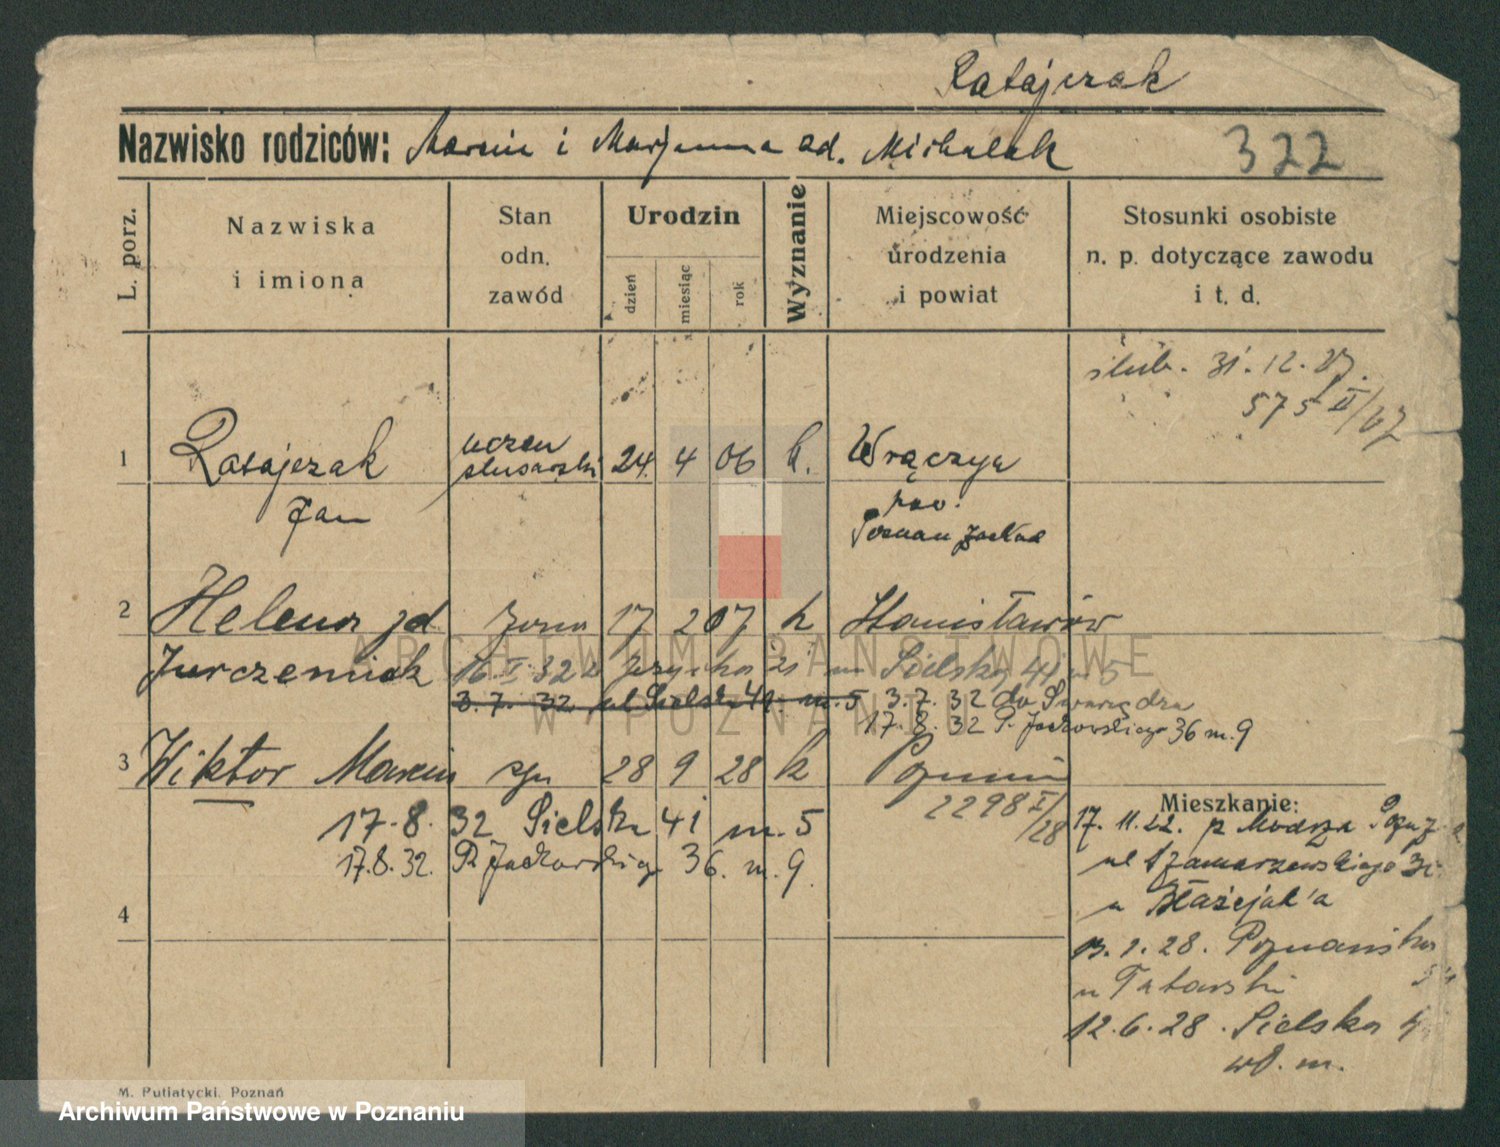 Ratajczak
Nazwisko rodziców: Marcin i Marjanna zd. Michalak 322
L. porz.
Nazwiska
i imiona
Stan
odn.
zawód
Urodzin
dzień
miesiąc
rok
Wyznanie
Miejscowość
urodzenia
i powiat
Stosunki osobiste
n. p. dotyczące zawodu
i t. d.
ślub. 31.12.27.
575 II/27
1 Ratajczak uczeń ślusarski 24. 4 06 k. Wrączyn
Jan pow.
Poznań Zachód
2 Helena zd żona 17 2 07 k Stanisławów
Jurczeniak 16 I 32 Sielska 41 m 5
3.7.32. ul Sielska 41. m. 5 3.7.32 do Swarzędza
17.8.32 P. Jackowskiego 36 m. 9
3 Wiktor Marcin syn 28 9 28 k Poznań
2298 I/28
17.8. 32 Sielska 41 m. 5
17.8.32. P. Jackowskiego 36. m. 9.
4
Mieszkanie:
17. 11.22. z
ul Szamarzewskiego
u Błażejak'a
13.1.28. Poznańska
u Tatarski
12.6.28. Sielska
wł. m.
M. Putiatycki, Poznań
ARCHIWUM PAŃSTWOWE
W POZNANIU
Archiwum Państwowe w Poznaniu